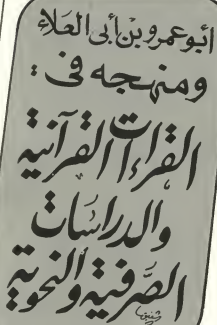 أبو عمرو بن أبى العلاء
ومنهجه فى :
القراءات القرآنية
والدراسات
الصرفية والنحوية